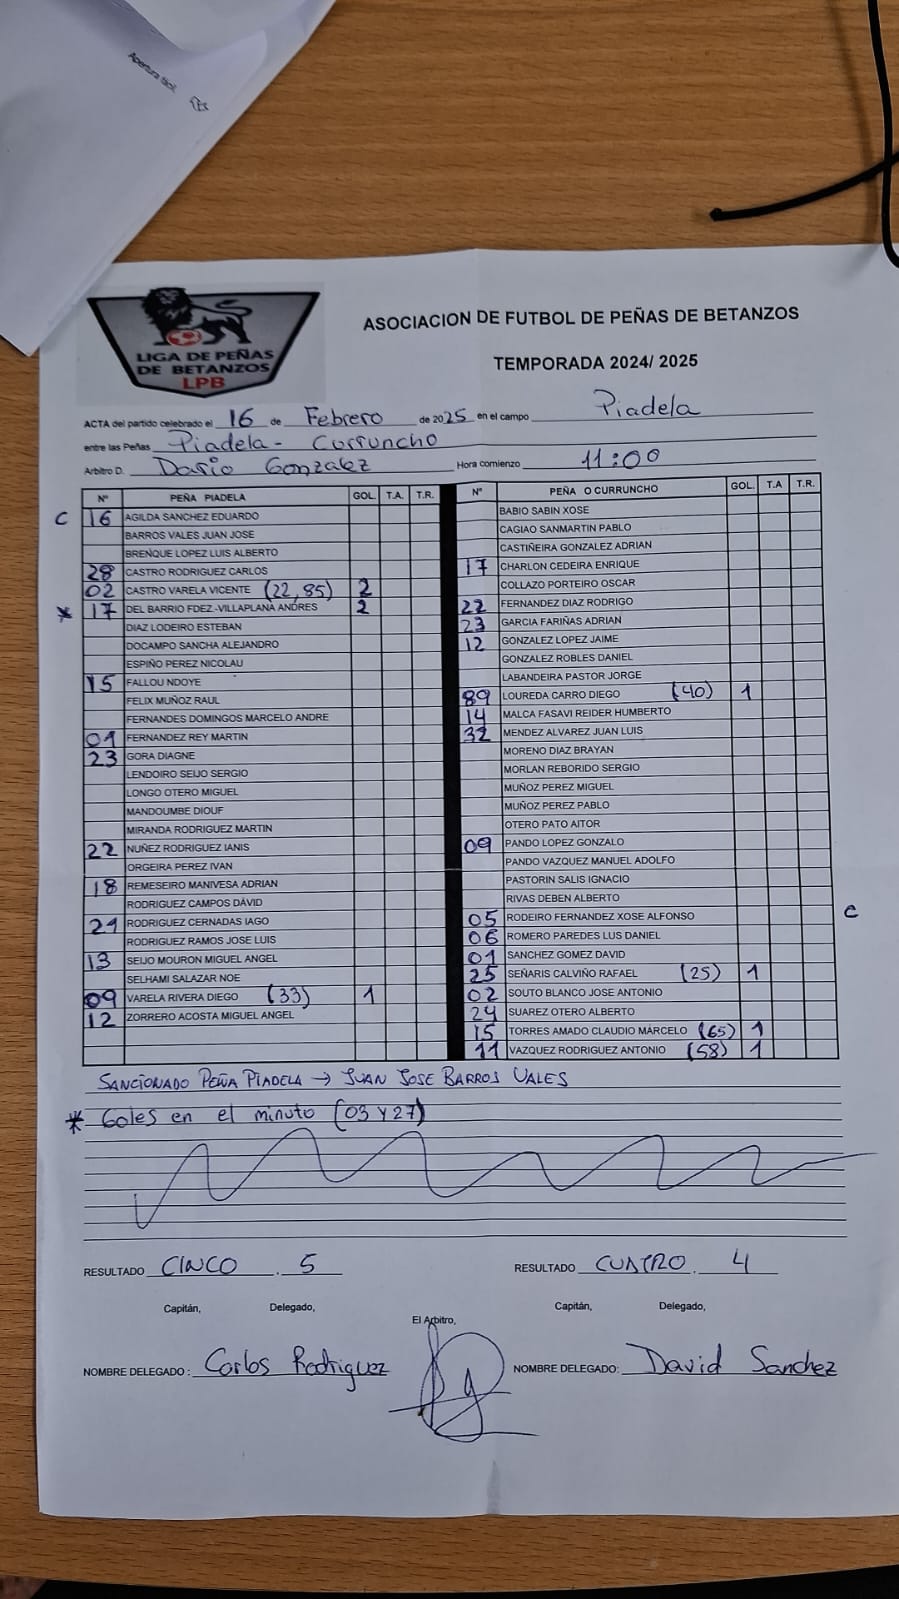 Apertura fácil
ASOCIACION DE FUTBOL DE PEÑAS DE BETANZOS
LIGA DE PEÑAS
DE BETANZOS
LPB
TEMPORADA 2024/ 2025
ACTA del partido celebrado el 16 de Febrero de 2025 en el campo Piadela
entre las Peñas Piadela - Curruncho
Arbitro D. Dario Gonzalez Hora comienzo 11:00
Nº PEÑA PIADELA GOL. T.A. T.R.
C 16 AGILDA SANCHEZ EDUARDO
BARROS VALES JUAN JOSE
BRENQUE LOPEZ LUIS ALBERTO
28 CASTRO RODRIGUEZ CARLOS
02 CASTRO VARELA VICENTE (22,85) 2
* 17 DEL BARRIO FDEZ -VILLAPLANA ANDRES 2
DIAZ LODEIRO ESTEBAN
DOCAMPO SANCHA ALEJANDRO
ESPIÑO PEREZ NICOLAU
15 FALLOU NDOYE
FELIX MUÑOZ RAUL
FERNANDES DOMINGOS MARCELO ANDRE
01 FERNANDEZ REY MARTIN
23 GORA DIAGNE
LENDOIRO SEIJO SERGIO
LONGO OTERO MIGUEL
MANDOUMBE DIOUF
MIRANDA RODRIGUEZ MARTIN
22 NUÑEZ RODRIGUEZ IANIS
ORGEIRA PEREZ IVAN
18 REMESEIRO MANIVESA ADRIAN
RODRIGUEZ CAMPOS DAVID
21 RODRIGUEZ CERNADAS IAGO
RODRIGUEZ RAMOS JOSE LUIS
13 SEIJO MOURON MIGUEL ANGEL
SELHAMI SALAZAR NOE
09 VARELA RIVERA DIEGO (33) 1
12 ZORRERO ACOSTA MIGUEL ANGEL
Nº PEÑA O CURRUNCHO GOL. T.A T.R.
BABIO SABIN XOSE
CAGIAO SANMARTIN PABLO
CASTIÑEIRA GONZALEZ ADRIAN
17 CHARLON CEDEIRA ENRIQUE
COLLAZO PORTEIRO OSCAR
22 FERNANDEZ DIAZ RODRIGO
23 GARCIA FARIÑAS ADRIAN
12 GONZALEZ LOPEZ JAIME
GONZALEZ ROBLES DANIEL
LABANDEIRA PASTOR JORGE
89 LOUREDA CARRO DIEGO (40) 1
14 MALCA FASAVI REIDER HUMBERTO
32 MENDEZ ALVAREZ JUAN LUIS
MORENO DIAZ BRAYAN
MORLAN REBORIDO SERGIO
MUÑOZ PEREZ MIGUEL
MUÑOZ PEREZ PABLO
OTERO PATO AITOR
09 PANDO LOPEZ GONZALO
PANDO VAZQUEZ MANUEL ADOLFO
PASTORIN SALIS IGNACIO
RIVAS DEBEN ALBERTO
05 RODEIRO FERNANDEZ XOSE ALFONSO C
06 ROMERO PAREDES LUS DANIEL
01 SANCHEZ GOMEZ DAVID
25 SEÑARIS CALVIÑO RAFAEL (25) 1
02 SOUTO BLANCO JOSE ANTONIO
24 SUAREZ OTERO ALBERTO
15 TORRES AMADO CLAUDIO MARCELO (65) 1
11 VAZQUEZ RODRIGUEZ ANTONIO (58) 1
SANCIONADO PEÑA PIADELA → JUAN JOSE BARROS VALES
* Goles en el minuto (03 Y 27)
RESULTADO CINCO . 5 RESULTADO CUATRO . 4
Capitán, Delegado, Capitán, Delegado,
El Arbitro,
NOMBRE DELEGADO : Carlos Rodriguez NOMBRE DELEGADO: David Sanchez